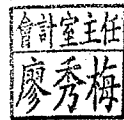 會計室主任
廖秀梅